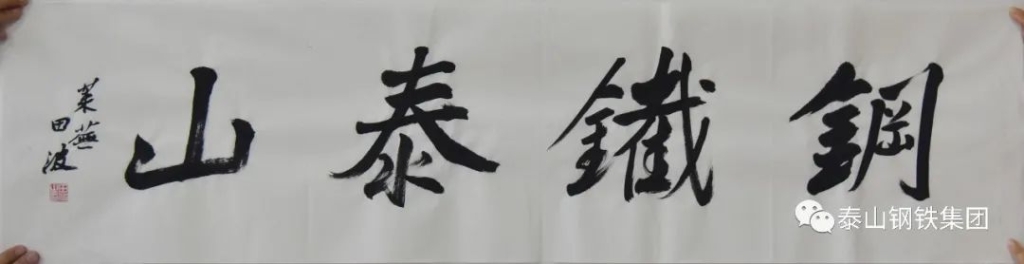 鋼鐵泰山
萊蕪
田波
泰山钢铁集团